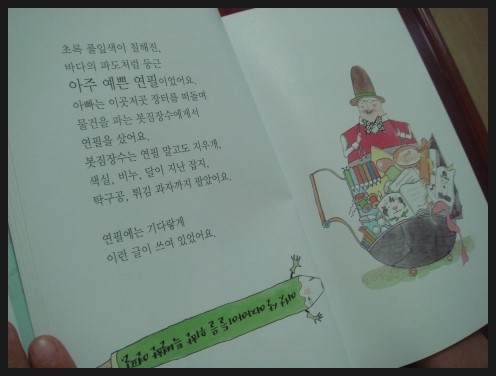 초록 풀잎색이 칠해진,
바다의 파도처럼 둥근
아주 예쁜 연필이었어요.
아빠는 이곳저곳 장터를 떠돌며
물건을 파는 봇짐장수에게서
연필을 샀어요.
봇짐장수는 연필 말고도 지우개,
색실, 비누, 달이 지난 잡지,
탁구공, 튀김 과자까지 팔았어요.
연필에는 기다랗게
이런 글이 쓰여 있었어요.
여섯 살 아이들을 위한 특별한 연필